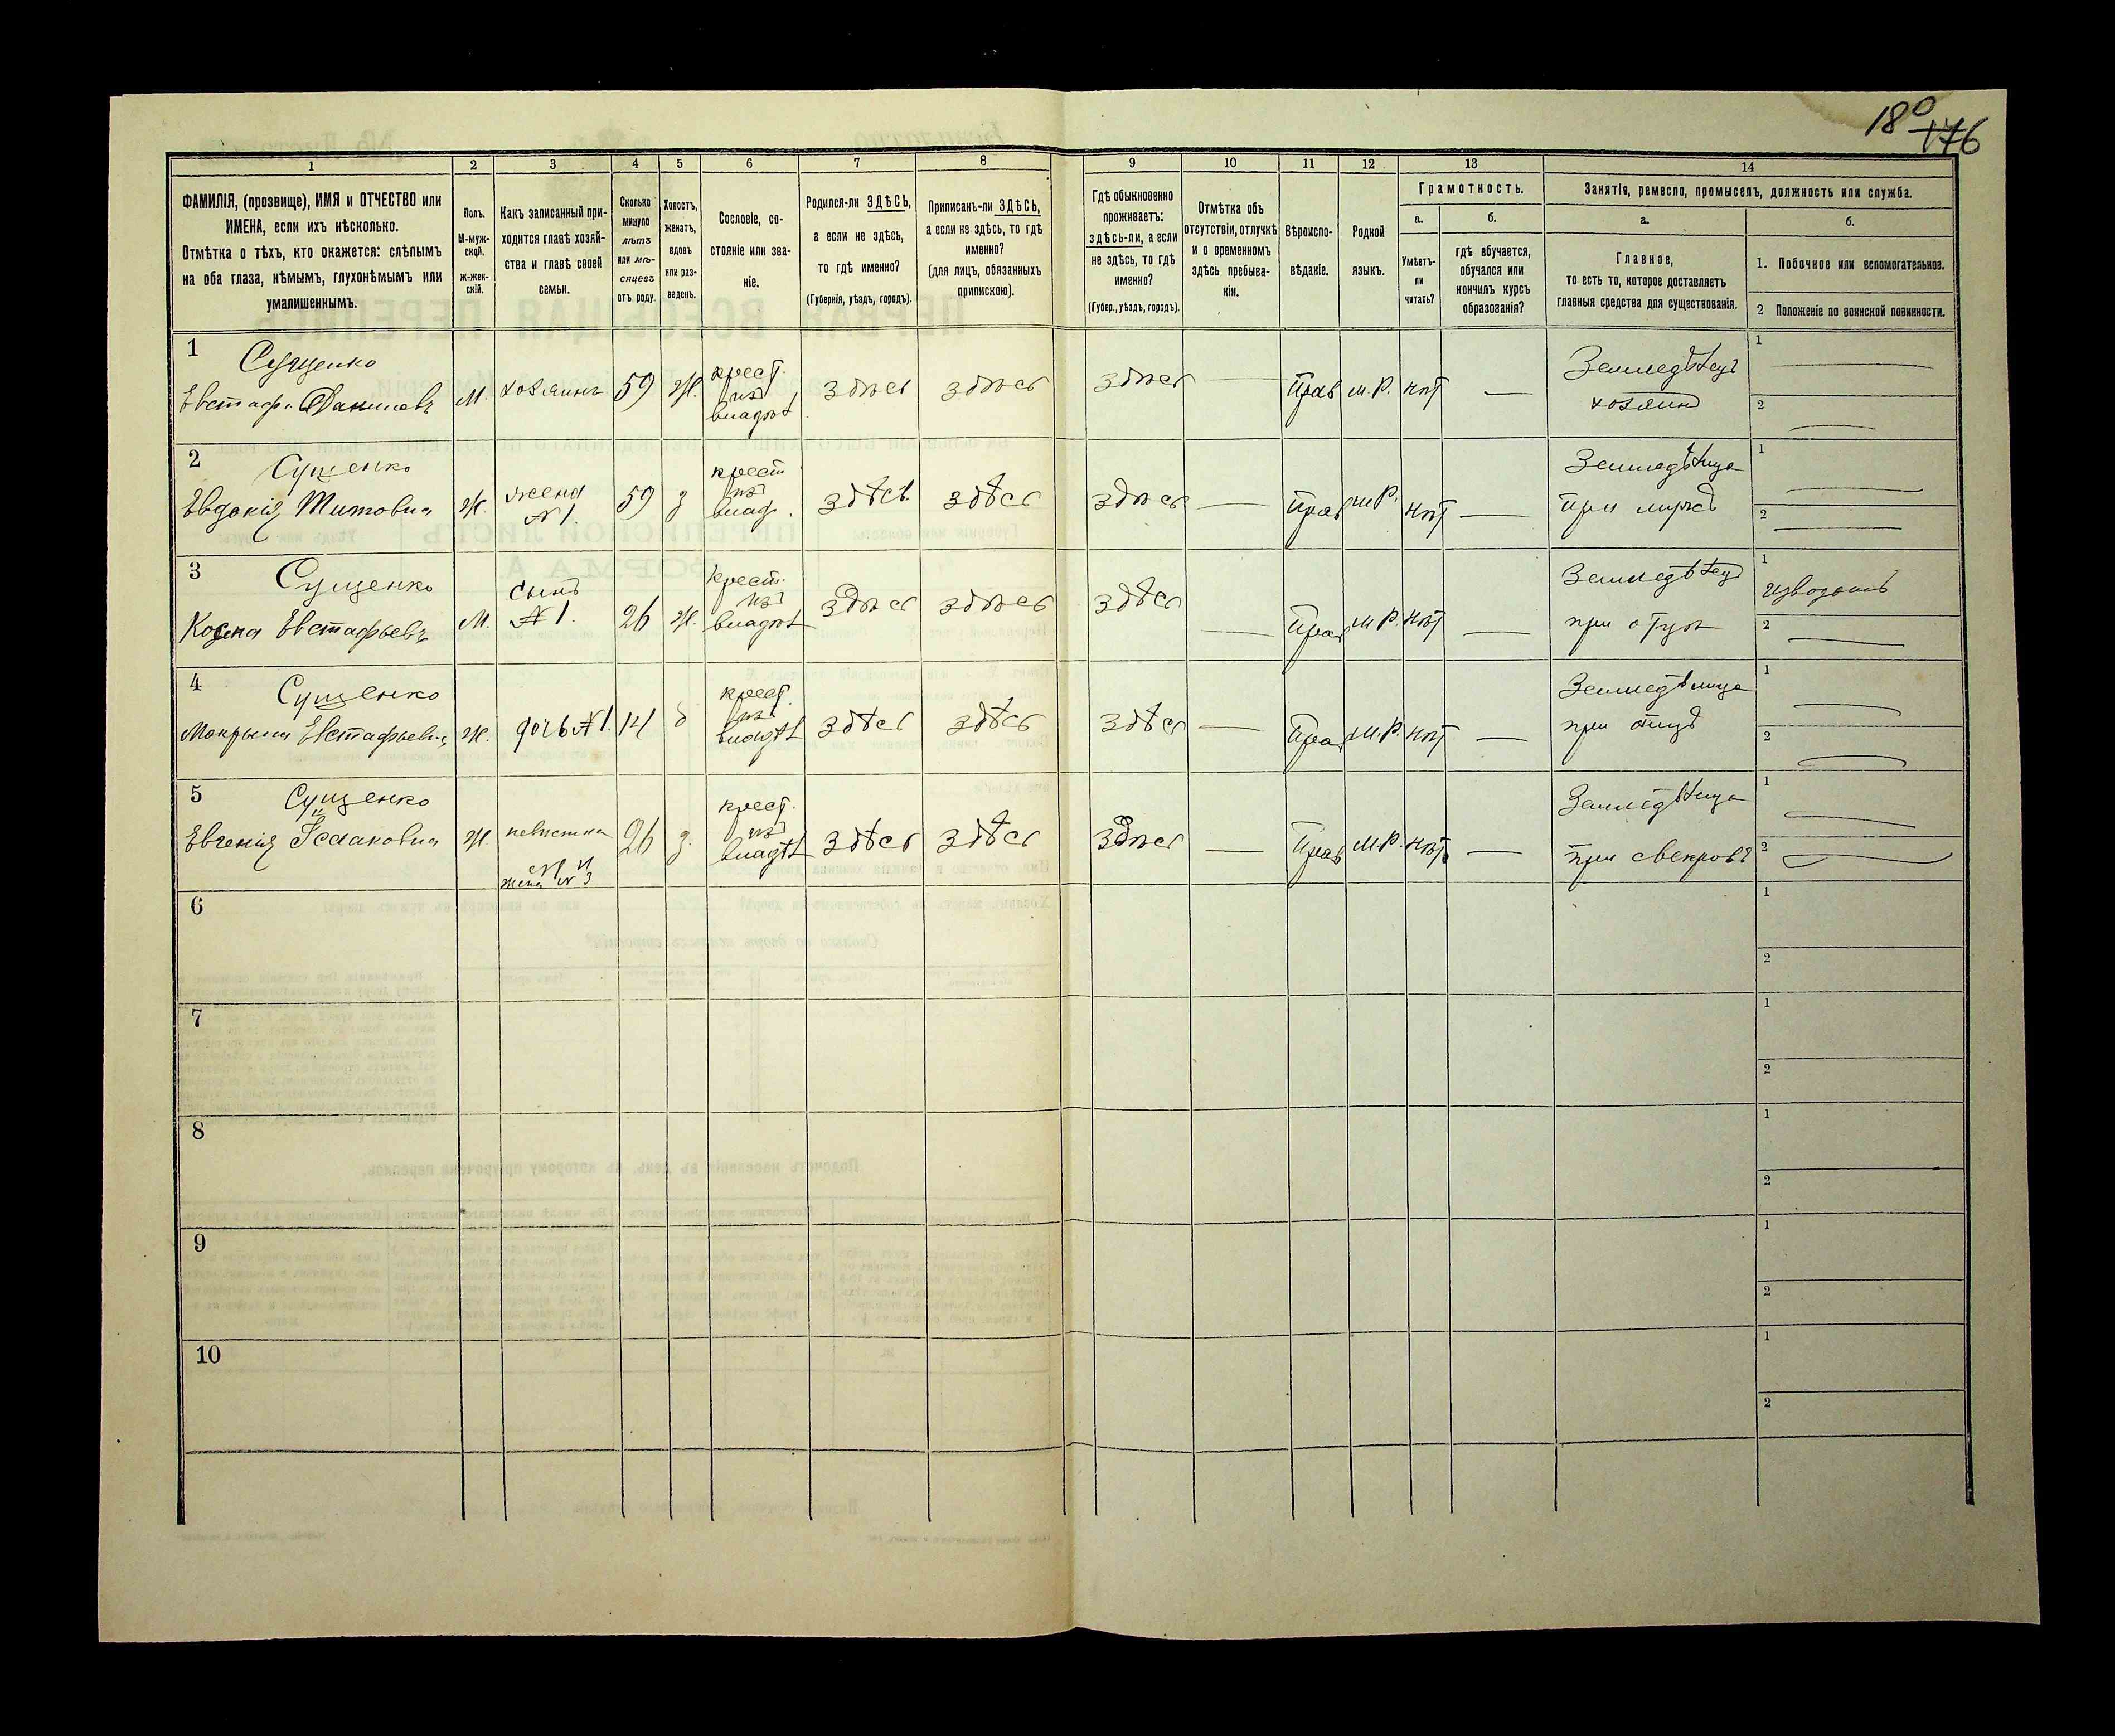 180
176
1
2
3
4
5
6
7
8
9
10
11
12
13
14
ФАМИЛІЯ, (прозвище), ИМЯ и ОТЧЕСТВО или
ИМЕНА, если ихъ нѣсколько.
Отмѣтка о тѣхъ, кто окажется: слѣпымъ
на оба глаза, нѣмымъ, глухонѣмымъ или
умалишеннымъ.
Полъ.
М-муж-
ской.
ж-жен-
скій.
Какъ записанный при-
ходится главѣ хозяй-
ства и главѣ своей
семьи.
Сколько
минуло
лѣтъ
или мѣ-
сяцевъ
отъ роду.
Холостъ,
женатъ,
вдовъ
или раз-
веденъ.
Сословіе, со-
стояніе или зва-
ніе.
Родился-ли ЗДѢСЬ,
а если не здѣсь,
то гдѣ именно?
(Губернія, уѣздъ, городъ).
Приписанъ-ли ЗДѢСЬ,
а если не здѣсь, то гдѣ
именно?
(для лицъ, обязанныхъ
припискою).
Гдѣ обыкновенно
проживаетъ:
здѣсь-ли, а если
не здѣсь, то гдѣ
именно?
(Губер., уѣздъ, городъ).
Отмѣтка объ
отсутствіи, отлучкѣ
и о временномъ
здѣсь пребыва-
ніи.
Вѣроиспо-
вѣданіе.
Родной
языкъ.
Грамотность.
а.
б.
Умѣетъ-
ли
читать?
гдѣ обучается,
обучался или
кончилъ курсъ
образованія?
Занятія, ремесло, промыселъ, должность или служба.
а.
б.
Главное,
то есть то, которое доставляетъ
главныя средства для существованія.
1. Побочное или вспомогательное.
2 Положеніе по воинской повинности.
1
Сущенко
Евстафи Данилевъ
М. хозяинъ 59 Ж. крест. изъ владѣл здѣсь здѣсь здѣсь — Прав м.Р. нѣт —
Земледѣлец
хозяин
1
2
2
Сущенко
Евдокія Титовна
Ж. жена №1. 59 з крест изъ влад. здѣсь здѣсь здѣсь — Прав м.Р. нѣт —
Земледѣлица
при мужѣ
1
2
3
Сущенко
Козма Евстафьевъ
М. сынъ №1. 26 Ж. крест. изъ владѣл здѣсь здѣсь здѣсь — Прав м.Р. нѣт —
Земледѣлец
при отцѣ
1
2
4
Сущенко
Мокрына Евстафьевна
Ж. дочь №1. 14 д крест. изъ владѣл здѣсь здѣсь здѣсь — Прав м.Р. нѣт —
Земледѣлица
при отцѣ
1
2
5
Сущенко
Евгенія Исааковна
Ж. невистка №1 и жена №3 26 з. крест. изъ владѣл здѣсь здѣсь здѣсь — Прав м.Р. нѣт. —
Земледѣлица
при свекровѣ
1
2
6
1
2
7
1
2
8
1
2
9
1
2
10
1
2